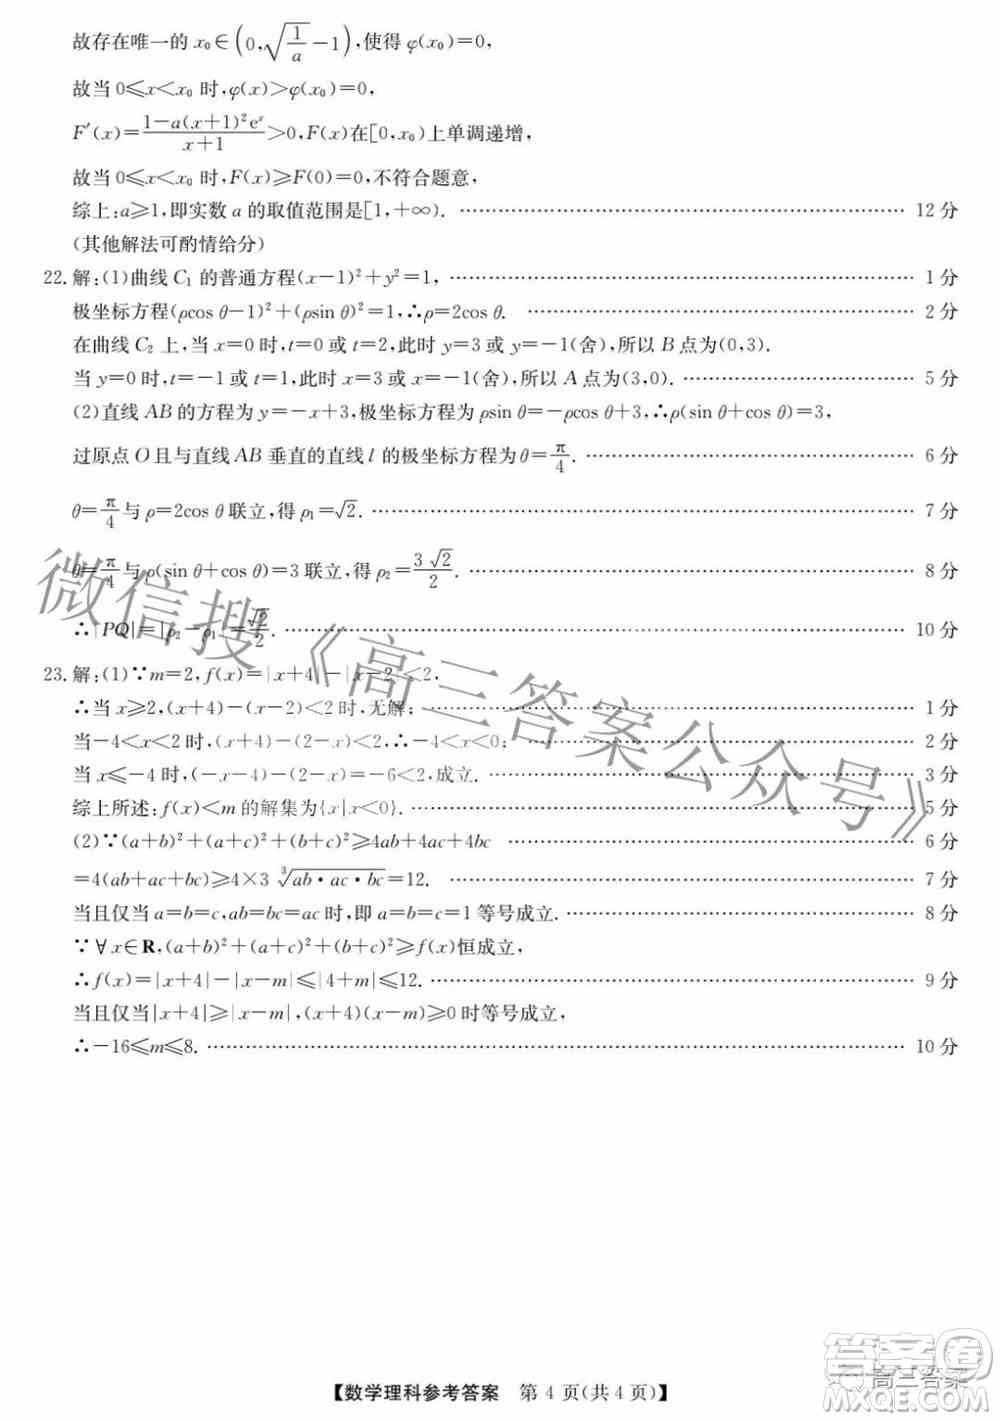 故存在唯一的 x₀∈(0,√(1/a)−1),使得 φ(x₀)=0,
故当 0≤x<x₀ 时,φ(x)>φ(x₀)=0,
F′(x)=(1−a(x+1)²eˣ)/(x+1)>0,F(x)在[0,x₀)上单调递增,
故当 0≤x<x₀ 时,F(x)≥F(0)=0,不符合题意,
综上:a≥1,即实数 a 的取值范围是[1,+∞). …… 12 分
(其他解法可酌情给分)
22.解:(1)曲线 C₁ 的普通方程(x−1)²+y²=1, …… 1 分
极坐标方程(ρcos θ−1)²+(ρsin θ)²=1,∴ρ=2cos θ. …… 2 分
在曲线 C₂ 上,当 x=0时,t=0 或 t=2,此时 y=3 或 y=−1(舍),所以 B 点为(0,3).
当 y=0 时,t=−1 或 t=1,此时 x=3 或 x=−1(舍),所以 A 点为(3,0). …… 5 分
(2)直线 AB 的方程为 y=−x+3,极坐标方程为 ρsin θ=−ρcos θ+3,∴ρ(sin θ+cos θ)=3,
过原点 O 且与直线 AB 垂直的直线 l 的极坐标方程为 θ=π/4. …… 6 分
θ=π/4 与 ρ=2cos θ 联立,得 ρ₁=√2. …… 7 分
θ=π/4 与 ρ(sin θ+cos θ)=3 联立,得 ρ₂=3√2/2. …… 8 分
∴|PQ|=|ρ₂−ρ₁|=√2/2. …… 10 分
23.解:(1)∵m=2,f(x)=|x+4|−|x−2|<2,
∴当 x≥2,(x+4)−(x−2)<2 时,无解; …… 1 分
当−4<x<2 时,(x+4)−(2−x)<2,∴−4<x<0; …… 2 分
当 x≤−4 时,(−x−4)−(2−x)=−6<2,成立. …… 3 分
综上所述:f(x)<m 的解集为{x|x<0}. …… 5 分
(2)∵(a+b)²+(a+c)²+(b+c)²≥4ab+4ac+4bc …… 6 分
=4(ab+ac+bc)≥4×3∛(ab·ac·bc)=12. …… 7 分
当且仅当 a=b=c,ab=bc=ac 时,即 a=b=c=1 等号成立. …… 8 分
∵∀x∈R,(a+b)²+(a+c)²+(b+c)²≥f(x)恒成立,
∴f(x)=|x+4|−|x−m|≤|4+m|≤12. …… 9 分
当且仅当|x+4|≥|x−m|,(x+4)(x−m)≥0 时等号成立,
∴−16≤m≤8. …… 10 分
微信搜《高三答案公众号》
答案卷
高三答案
MXQE.COM
【数学理科参考答案 第 4 页(共 4 页)】